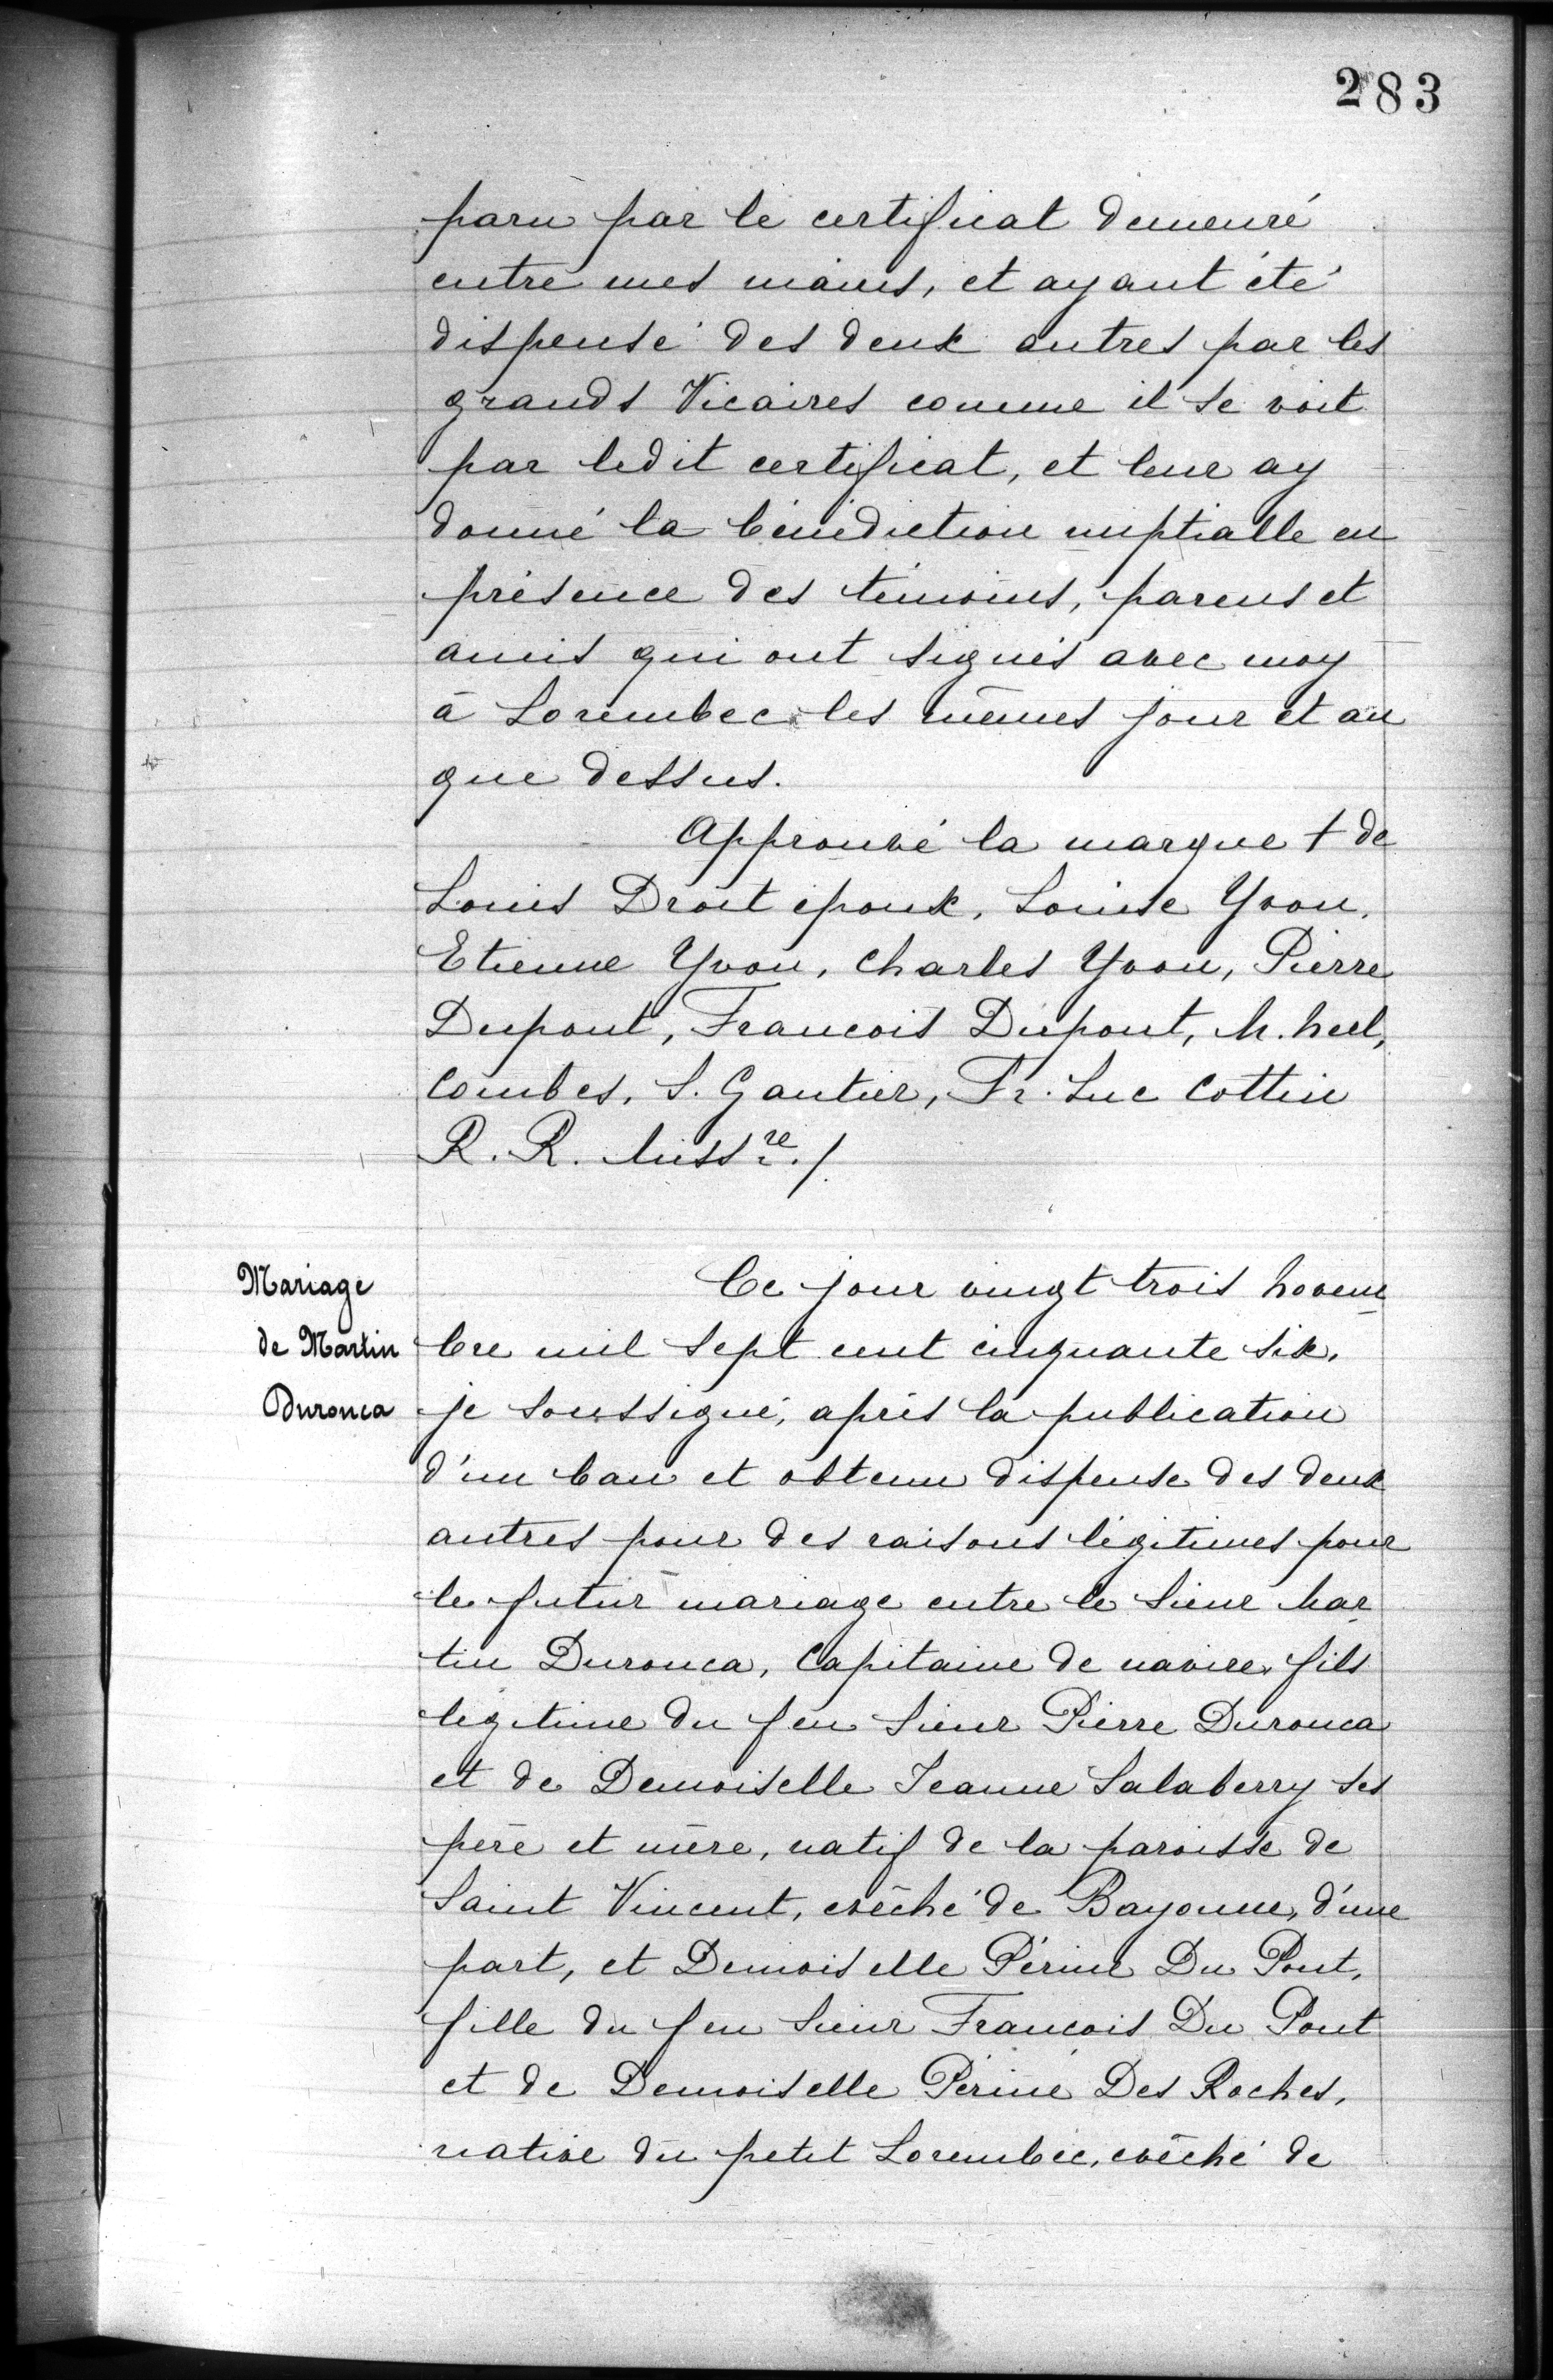 283
paru par le certificat demeuré
entre mes mains, et ayant été
dispensé des deux autres par les
grands Vicaires comme il se voit
par ledit certificat, et leur ay
donné la bénédiction nuptialle en
présence des témoins, parens et
amis qui ont signés avec moy
à Lorembec les mêmes jour et an
que dessus.
Approuvé la marque + de
Louis Droit epoux, Louise Yvon,
Etienne Yvon, Charles Yvon, Pierre
Dupont, Francois Dupont,
Combes, S. Gautier, Fr. Luc Cottin
R. R. Missre. /.
Mariage
de Martin
Duronca
Ce jour vingt trois Novem
bre mil sept cent cinquante six,
je soussigné, après la publication
d'un ban et obtenu dispense des deux
autres pour des raisons légitimes pour
le futur mariage entre le Sieur Mar
tin Duronca, Capitaine de navire, fils
legitime du feu Sieur Pierre Duronca
et de Demoiselle Jeanne Salaberry ses
père et mère, natif de la paroisse de
Saint Vincent, evêché de Bayonne, d'une
part, et Demoiselle Périne Du Pont,
fille du feu Sieur Francois Du Pont
et de Demoiselle Périne Des Roches,
native du petit Lorembec, evêché de